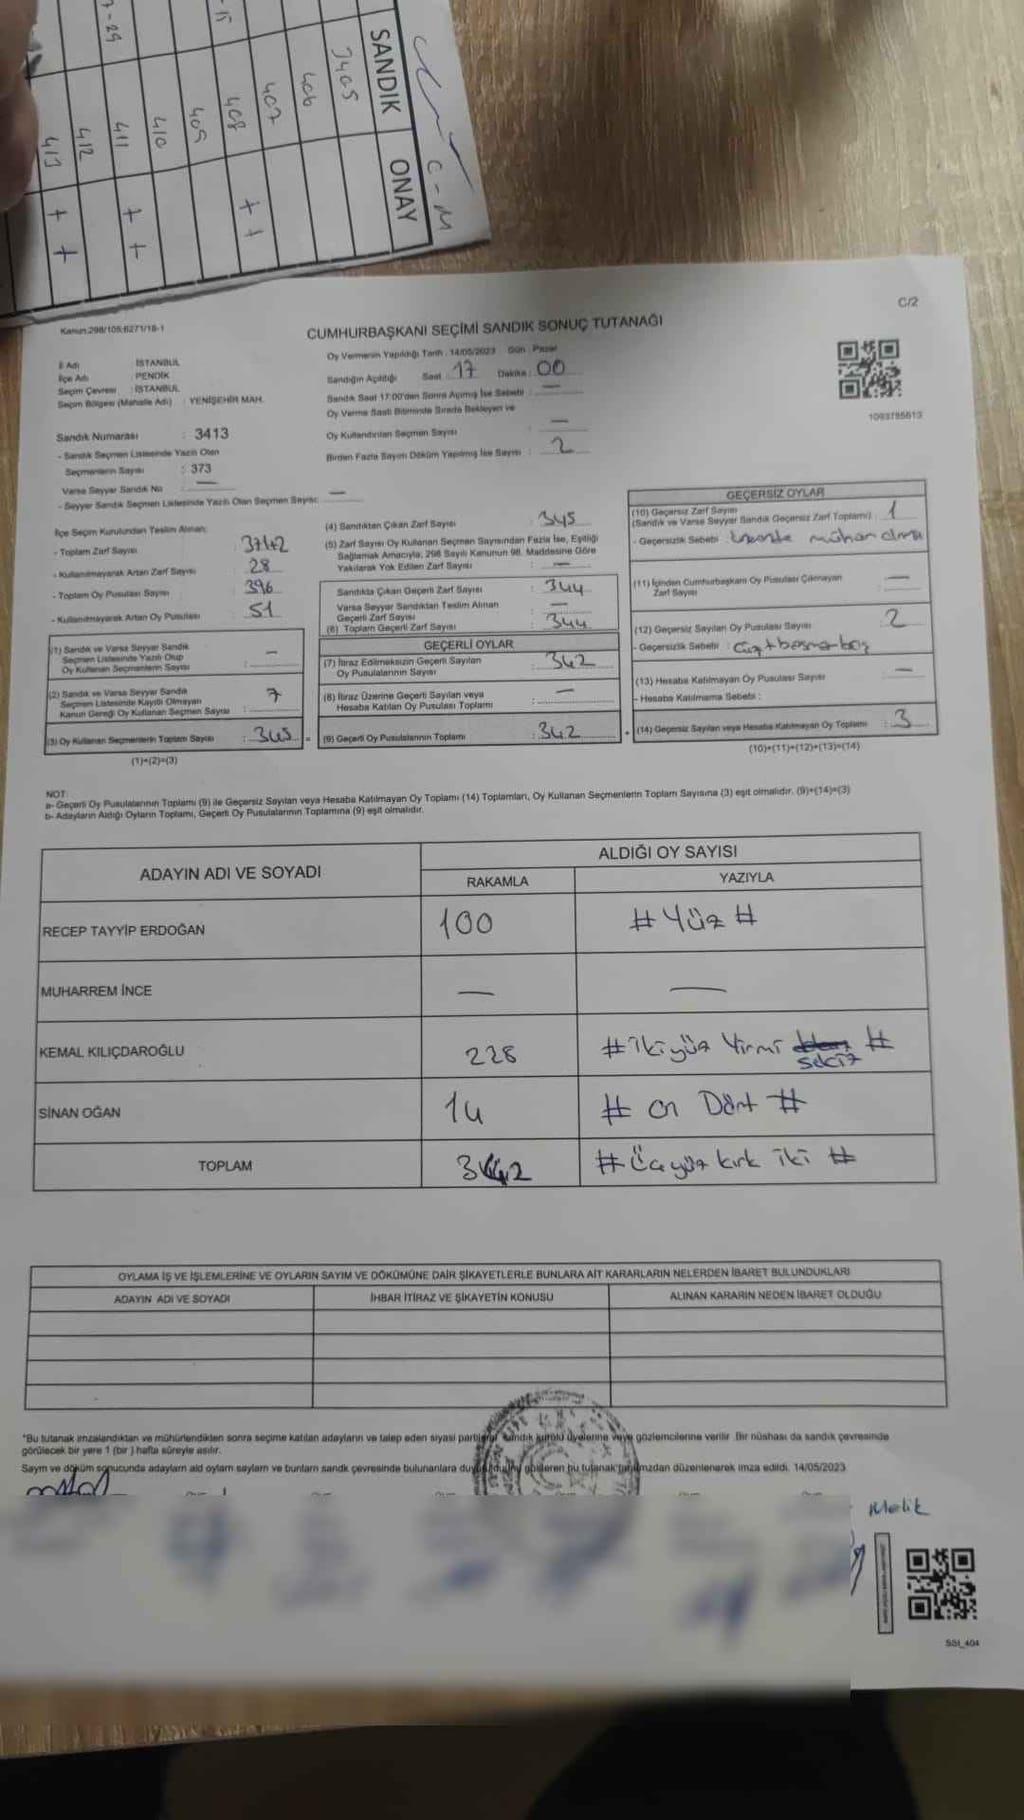 SANDIK ONAY
3405
406
407
408 + +
409
410
411 + +
412
413 + +
C-M
C/2
Kanun:298/105;6271/18-1
CUMHURBAŞKANI SEÇİMİ SANDIK SONUÇ TUTANAĞI
İl Adı : İSTANBUL
İlçe Adı : PENDİK
Seçim Çevresi : İSTANBUL
Seçim Bölgesi (Mahalle Adı) : YENİŞEHİR MAH.
Oy Vermenin Yapıldığı Tarih : 14/05/2023 Gün : Pazar
Sandığın Açıldığı Saat : 17 Dakika : 00
Sandık Saat 17:00'den Sonra Açılmış İse Sebebi : —
Oy Verme Saati Bitiminde Sırada Bekleyen ve
Oy Kullandırılan Seçmen Sayısı : —
Birden Fazla Sayım Döküm Yapılmış İse Sayısı : 2
1093785613
Sandık Numarası : 3413
- Sandık Seçmen Listesinde Yazılı Olan
Seçmenlerin Sayısı : 373
Varsa Seyyar Sandık No : —
- Seyyar Sandık Seçmen Listesinde Yazılı Olan Seçmen Sayısı: —
İlçe Seçim Kurulundan Teslim Alınan:
- Toplam Zarf Sayısı
- Kullanılmayarak Artan Zarf Sayısı : 28
- Toplam Oy Pusulası Sayısı : 396
- Kullanılmayarak Artan Oy Pusulası : 51
(1) Sandık ve Varsa Seyyar Sandık
Seçmen Listesinde Yazılı Olup
Oy Kullanan Seçmenlerin Sayısı : —
(2) Sandık ve Varsa Seyyar Sandık
Seçmen Listesinde Kayıtlı Olmayan
Kanun Gereği Oy Kullanan Seçmen Sayısı : 7
(3) Oy Kullanan Seçmenlerin Toplam Sayısı : 345
(1)+(2)=(3)
(4) Sandıktan Çıkan Zarf Sayısı : 345
(5) Zarf Sayısı Oy Kullanan Seçmen Sayısından Fazla İse, Eşitliği
Sağlamak Amacıyla, 298 Sayılı Kanunun 98. Maddesine Göre
Yakılarak Yok Edilen Zarf Sayısı : —
Sandıkta Çıkan Geçerli Zarf Sayısı : 344
Varsa Seyyar Sandıktan Teslim Alınan
Geçerli Zarf Sayısı : —
(6) Toplam Geçerli Zarf Sayısı : 344
GEÇERLİ OYLAR
(7) İtiraz Edilmeksizin Geçerli Sayılan
Oy Pusulalarının Sayısı : 342
(8) İtiraz Üzerine Geçerli Sayılan veya
Hesaba Katılan Oy Pusulası Toplamı : —
= (9) Geçerli Oy Pusulalarının Toplamı : 342
GEÇERSİZ OYLAR
(10) Geçersiz Zarf Sayısı
(Sandık ve Varsa Seyyar Sandık Geçersiz Zarf Toplamı) : 1
- Geçersizlik Sebebi :
(11) İçinden Cumhurbaşkanı Oy Pusulası Çıkmayan
Zarf Sayısı : —
(12) Geçersiz Sayılan Oy Pusulası Sayısı : 2
- Geçersizlik Sebebi :
(13) Hesaba Katılmayan Oy Pusulası Sayısı : —
- Hesaba Katılmama Sebebi :
+ (14) Geçersiz Sayılan veya Hesaba Katılmayan Oy Toplamı : 3
(10)+(11)+(12)+(13)=(14)
NOT:
a- Geçerli Oy Pusulalarının Toplamı (9) ile Geçersiz Sayılan veya Hesaba Katılmayan Oy Toplamı (14) Toplamları, Oy Kullanan Seçmenlerin Toplam Sayısına (3) eşit olmalıdır. (9)+(14)=(3)
b- Adayların Aldığı Oyların Toplamı, Geçerli Oy Pusulalarının Toplamına (9) eşit olmalıdır.
ADAYIN ADI VE SOYADI
ALDIĞI OY SAYISI
RAKAMLA YAZIYLA
RECEP TAYYİP ERDOĞAN 100 # Yüz #
MUHARREM İNCE — —
KEMAL KILIÇDAROĞLU 228 # ikiyüz Yirmi sekiz #
SİNAN OĞAN 14 # on Dört #
TOPLAM 342 # Üçyüz kırk iki #
OYLAMA İŞ VE İŞLEMLERİNE VE OYLARIN SAYIM VE DÖKÜMÜNE DAİR ŞİKAYETLERLE BUNLARA AİT KARARLARIN NELERDEN İBARET BULUNDUKLARI
ADAYIN ADI VE SOYADI İHBAR İTİRAZ VE ŞİKAYETİN KONUSU ALINAN KARARIN NEDEN İBARET OLDUĞU
"Bu tutanak imzalandıktan ve mühürlendikten sonra seçime katılan adayların ve talep eden siyasi sandık kurulu üyelerine veya gözlemcilerine verilir. Bir nüshası da sandık çevresinde
görülecek bir yere 1 (bir ) hafta süreyle asılır.
Sayım ve döküm sonucunda adayların ald oyların sayların ve bunların sandk çevresinde bulunanlara gösteren bu tutanak düzenlenerek imza edildi. 14/05/2023
Melik
SSI_404